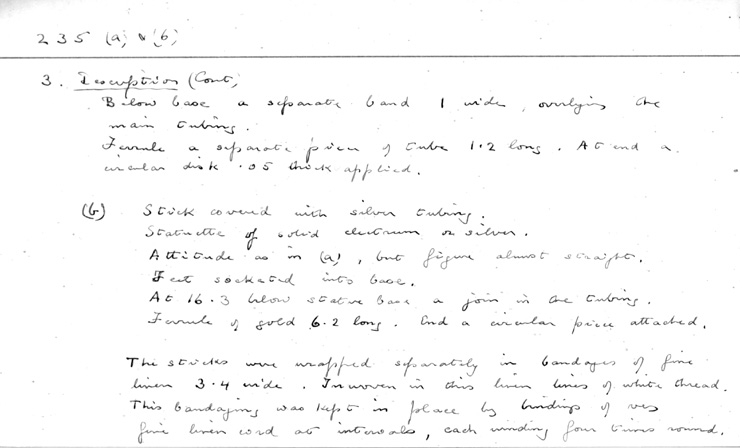 235 (a) & (b)
3. Description (Cont)
Below base a separate band 1 wide, overlying the
main tubing.
Ferrule a separate piece of tube 1·2 long. At end a
circular disk ·05 thick applied.
(b) Stick covered with silver tubing.
Statuette of solid electrum or silver.
Attitude as in (a), but figure almost straight.
Feet socketed into base.
At 16·3 below statue base a join in the tubing.
Ferrule of gold 6·2 long. End a circular piece attached.
The sticks were wrapped separately in bandages of fine
linen 3·4 wide. Inwoven in this linen lines of white thread.
This bandaging was kept in place by bindings of very
fine linen cord at intervals, each winding four times round.